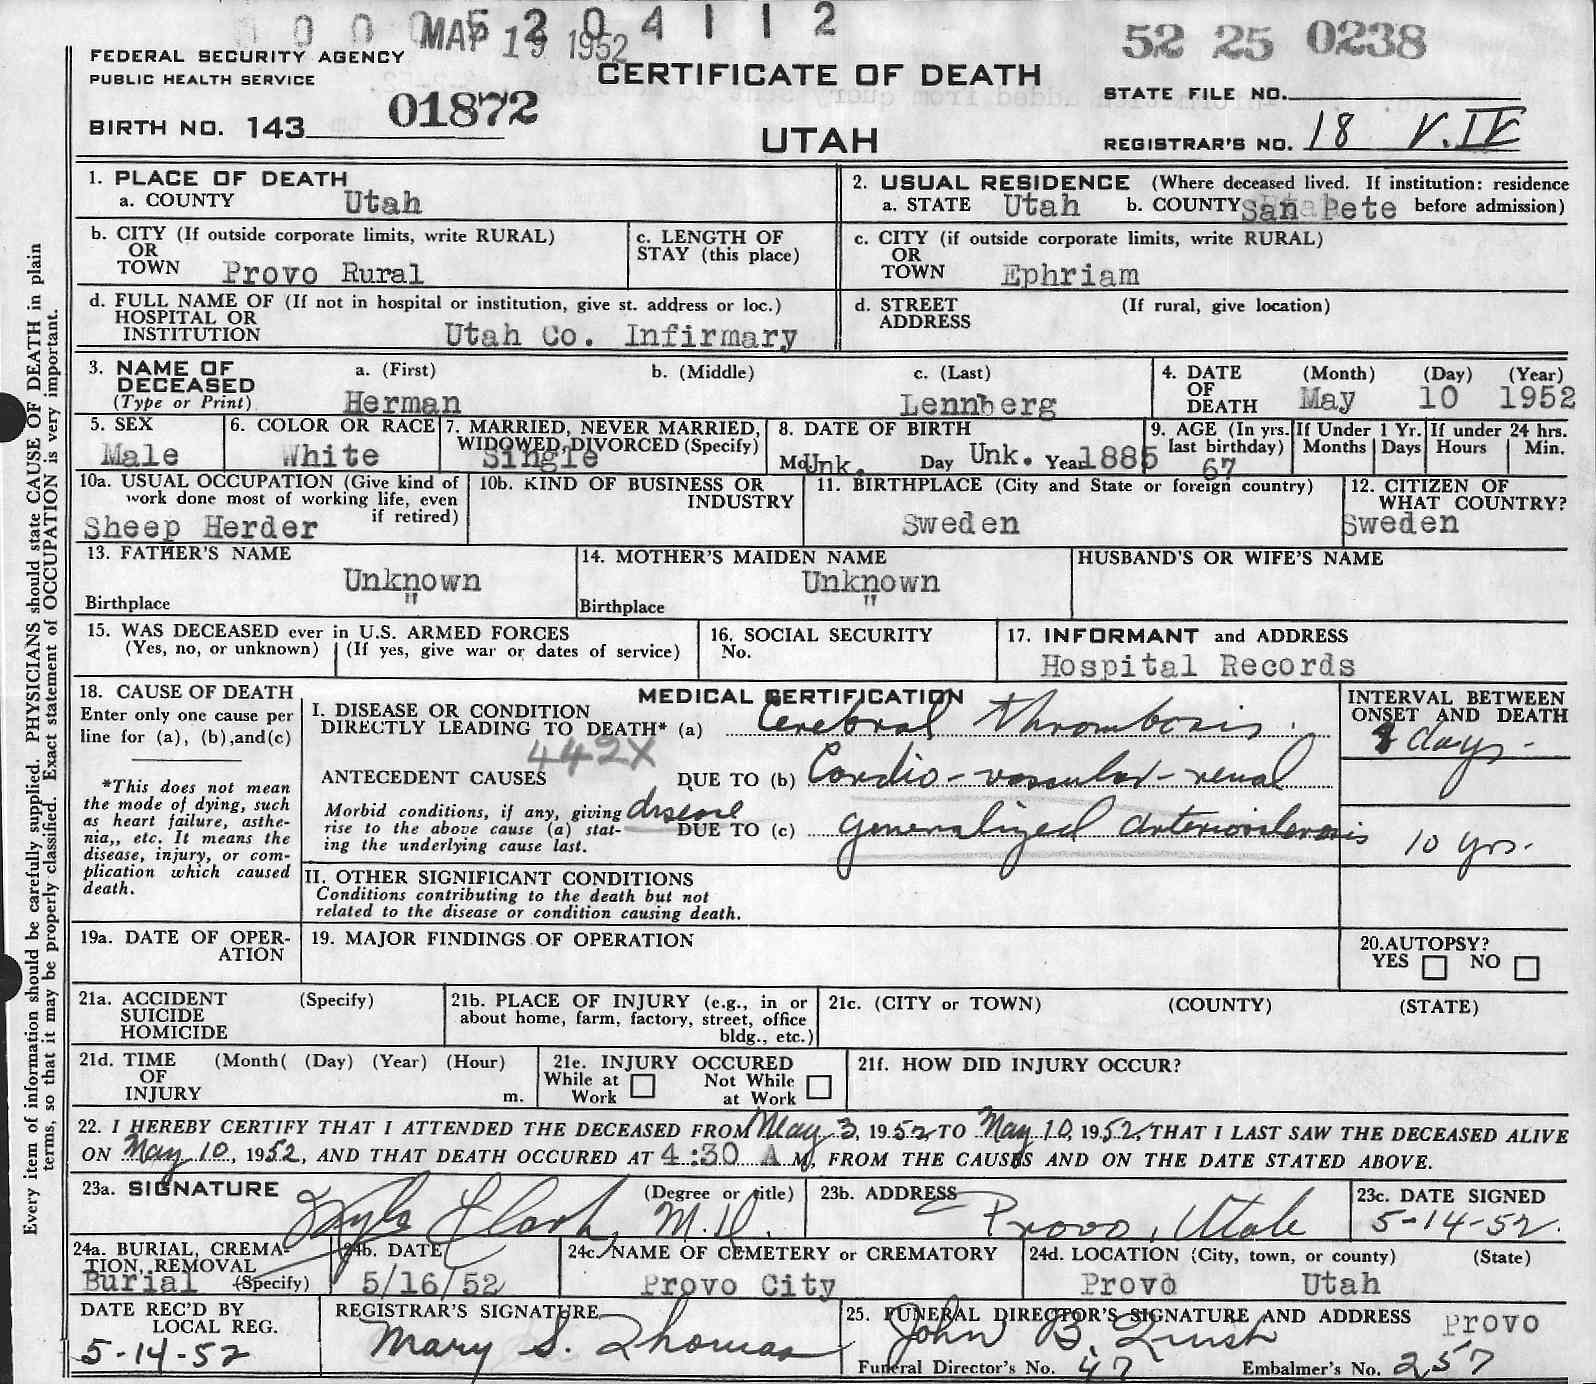 0 0 0 5 2 0 4 1 1 2
MAY 19 1952
52 25 0238
FEDERAL SECURITY AGENCY
PUBLIC HEALTH SERVICE
CERTIFICATE OF DEATH
STATE FILE NO.
BIRTH NO. 143 01872
UTAH
REGISTRAR'S NO. 18 V.IV
1. PLACE OF DEATH
a. COUNTY Utah
2. USUAL RESIDENCE (Where deceased lived. If institution: residence
a. STATE Utah b. COUNTY San Pete before admission)
b. CITY (If outside corporate limits, write RURAL)
OR
TOWN Provo Rural
c. LENGTH OF
STAY (this place)
c. CITY (if outside corporate limits, write RURAL)
OR
TOWN Ephriam
d. FULL NAME OF (If not in hospital or institution, give st. address or loc.)
HOSPITAL OR
INSTITUTION Utah Co. Infirmary
d. STREET (If rural, give location)
ADDRESS
3. NAME OF a. (First) b. (Middle) c. (Last)
DECEASED
(Type or Print) Herman Lennberg
4. DATE (Month) (Day) (Year)
OF
DEATH May 10 1952
5. SEX
Male
6. COLOR OR RACE
White
7. MARRIED, NEVER MARRIED,
WIDOWED, DIVORCED (Specify)
Single
8. DATE OF BIRTH
Mo. Unk. Day Unk. Year 1885
9. AGE (In yrs.
last birthday)
67
If Under 1 Yr.
Months Days
If under 24 hrs.
Hours Min.
10a. USUAL OCCUPATION (Give kind of
work done most of working life, even
if retired)
Sheep Herder
10b. KIND OF BUSINESS OR
INDUSTRY
11. BIRTHPLACE (City and State or foreign country)
Sweden
12. CITIZEN OF
WHAT COUNTRY?
Sweden
13. FATHER'S NAME
Unknown
Birthplace "
14. MOTHER'S MAIDEN NAME
Unknown
Birthplace "
HUSBAND'S OR WIFE'S NAME
15. WAS DECEASED ever in U.S. ARMED FORCES
(Yes, no, or unknown) (If yes, give war or dates of service)
16. SOCIAL SECURITY
No.
17. INFORMANT and ADDRESS
Hospital Records
18. CAUSE OF DEATH
Enter only one cause per
line for (a), (b),and(c)
*This does not mean
the mode of dying, such
as heart failure, asthe-
nia,, etc. It means the
disease, injury, or com-
plication which caused
death.
MEDICAL CERTIFICATION
I. DISEASE OR CONDITION
DIRECTLY LEADING TO DEATH* (a) Cerebral thrombosis.
442X
ANTECEDENT CAUSES DUE TO (b) Cardio-vascular-renal
Morbid conditions, if any, giving disease
rise to the above cause (a) stat- DUE TO (c) generalized arteriosclerosis
ing the underlying cause last.
INTERVAL BETWEEN
ONSET AND DEATH
8 days-
10 yrs.
II. OTHER SIGNIFICANT CONDITIONS
Conditions contributing to the death but not
related to the disease or condition causing death.
19a. DATE OF OPER-
ATION
19. MAJOR FINDINGS OF OPERATION
20.AUTOPSY?
YES NO
21a. ACCIDENT (Specify)
SUICIDE
HOMICIDE
21b. PLACE OF INJURY (e.g., in or
about home, farm, factory, street, office
bldg., etc.)
21c. (CITY or TOWN) (COUNTY) (STATE)
21d. TIME (Month( (Day) (Year) (Hour)
OF
INJURY m.
21e. INJURY OCCURED
While at Not While
Work at Work
21f. HOW DID INJURY OCCUR?
22. I HEREBY CERTIFY THAT I ATTENDED THE DECEASED FROM May 3, 1952 TO May 10, 1952, THAT I LAST SAW THE DECEASED ALIVE
ON May 10, 1952, AND THAT DEATH OCCURED AT 4:30 A M, FROM THE CAUSES AND ON THE DATE STATED ABOVE.
23a. SIGNATURE (Degree or title)
Clark, M.D.
23b. ADDRESS
Provo, Utah
23c. DATE SIGNED
5-14-52.
24a. BURIAL, CREMA-
TION, REMOVAL
Burial (Specify)
24b. DATE
5/16/52
24c. NAME OF CEMETERY or CREMATORY
Provo City
24d. LOCATION (City, town, or county) (State)
Provo Utah
DATE REC'D BY
LOCAL REG.
5-14-52
REGISTRAR'S SIGNATURE
Mary S. Thomas
25. FUNERAL DIRECTOR'S SIGNATURE AND ADDRESS Provo
John B.
Funeral Director's No. 47 Embalmer's No. 257
Every item of information should be carefully supplied. PHYSICIANS should state CAUSE OF DEATH in plain
terms, so that it may be properly classified. Exact statement of OCCUPATION is very important.